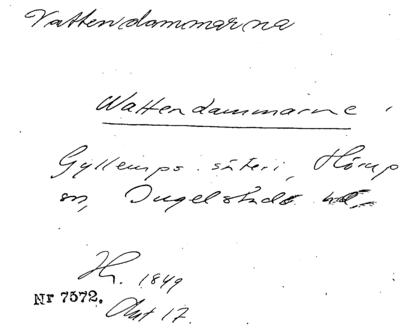 Vattendammarna
Wattendammarne
Gyllerups säteri, Hörup
sn, Ingelstads hd.
Hr. 1849
Nr 7572.
Akt 17.